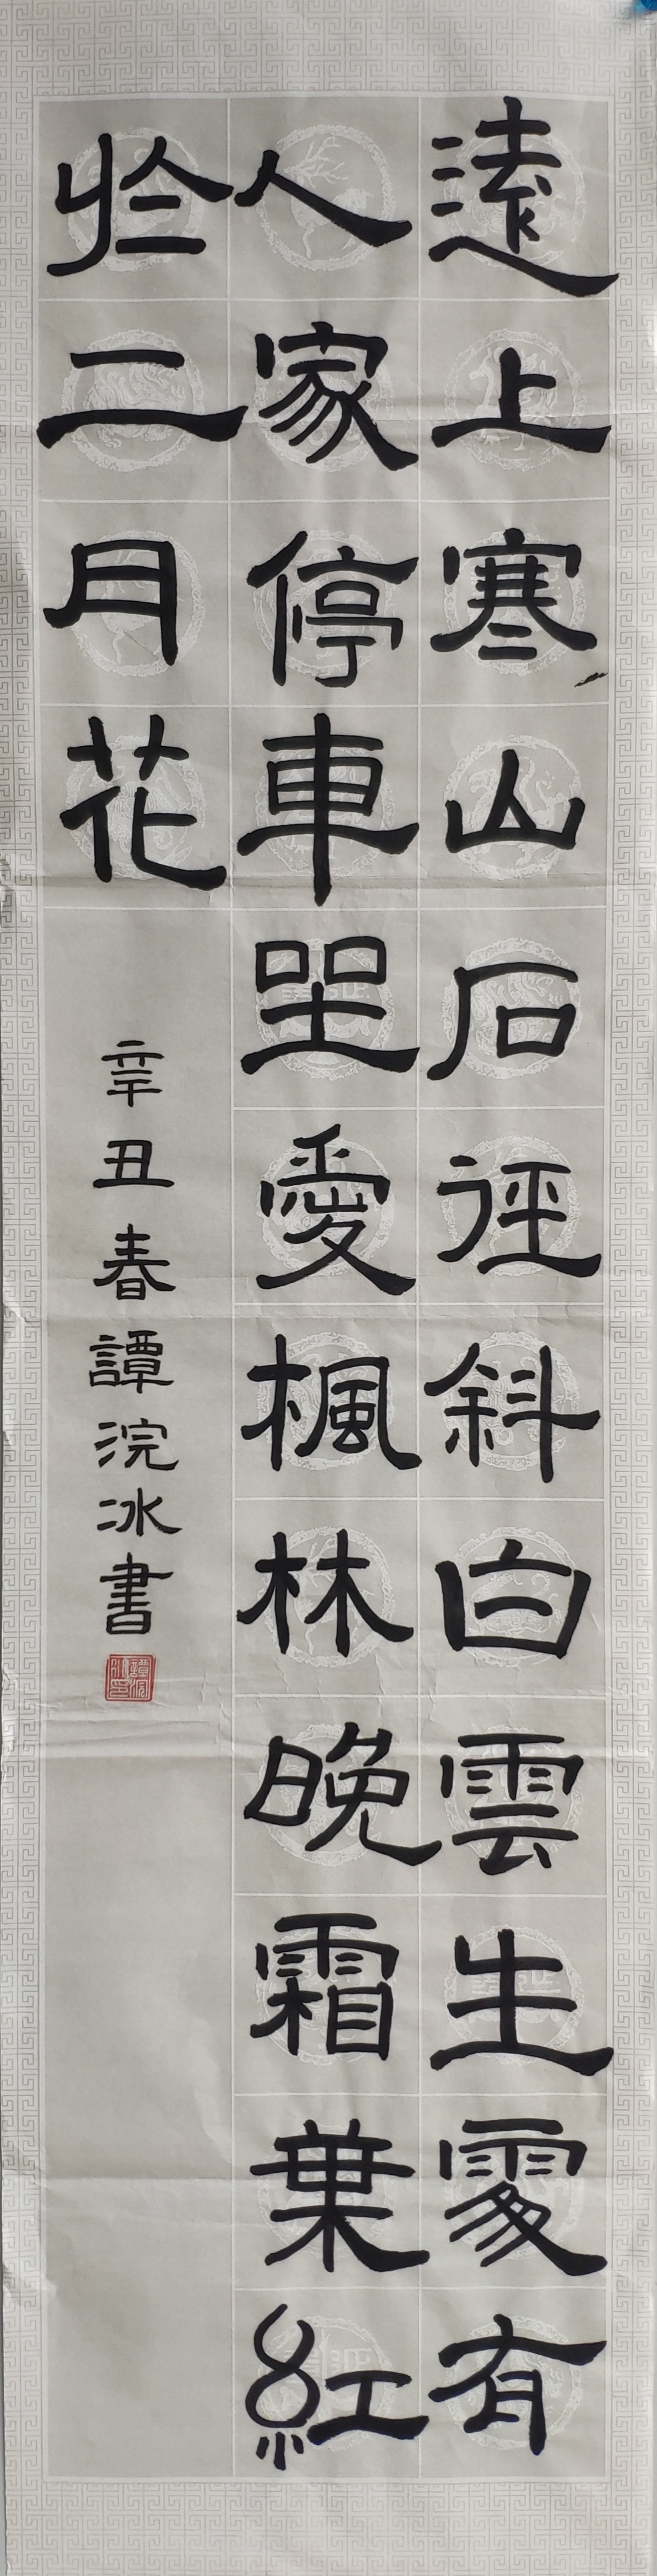 遠上寒山石徑斜白雲生處有
人家停車坐愛楓林晚霜葉紅
於二月花
辛丑春譚浣冰書